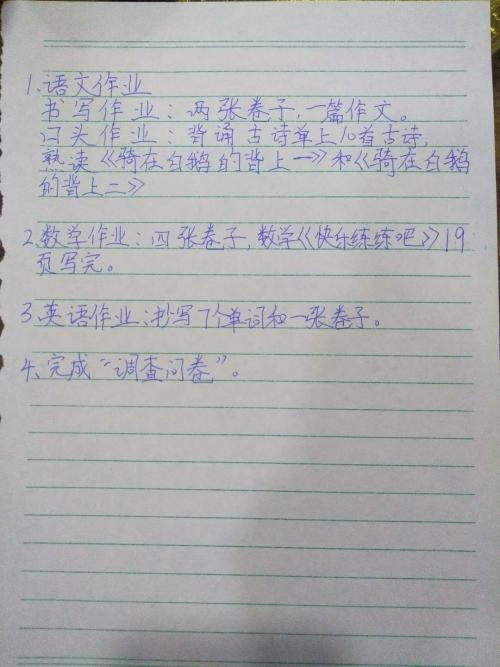 1.语文作业
书写作业：两张卷子，一篇作文。
口头作业：背诵古诗单上10首古诗，
熟读《骑在白鹅的背上一》和《骑在白鹅
的背上二》
2.数学作业：四张卷子，数学《快乐练练吧》19
页写完。
3.英语作业：抄写7个单词和一张卷子。
4、完成“调查问卷”。